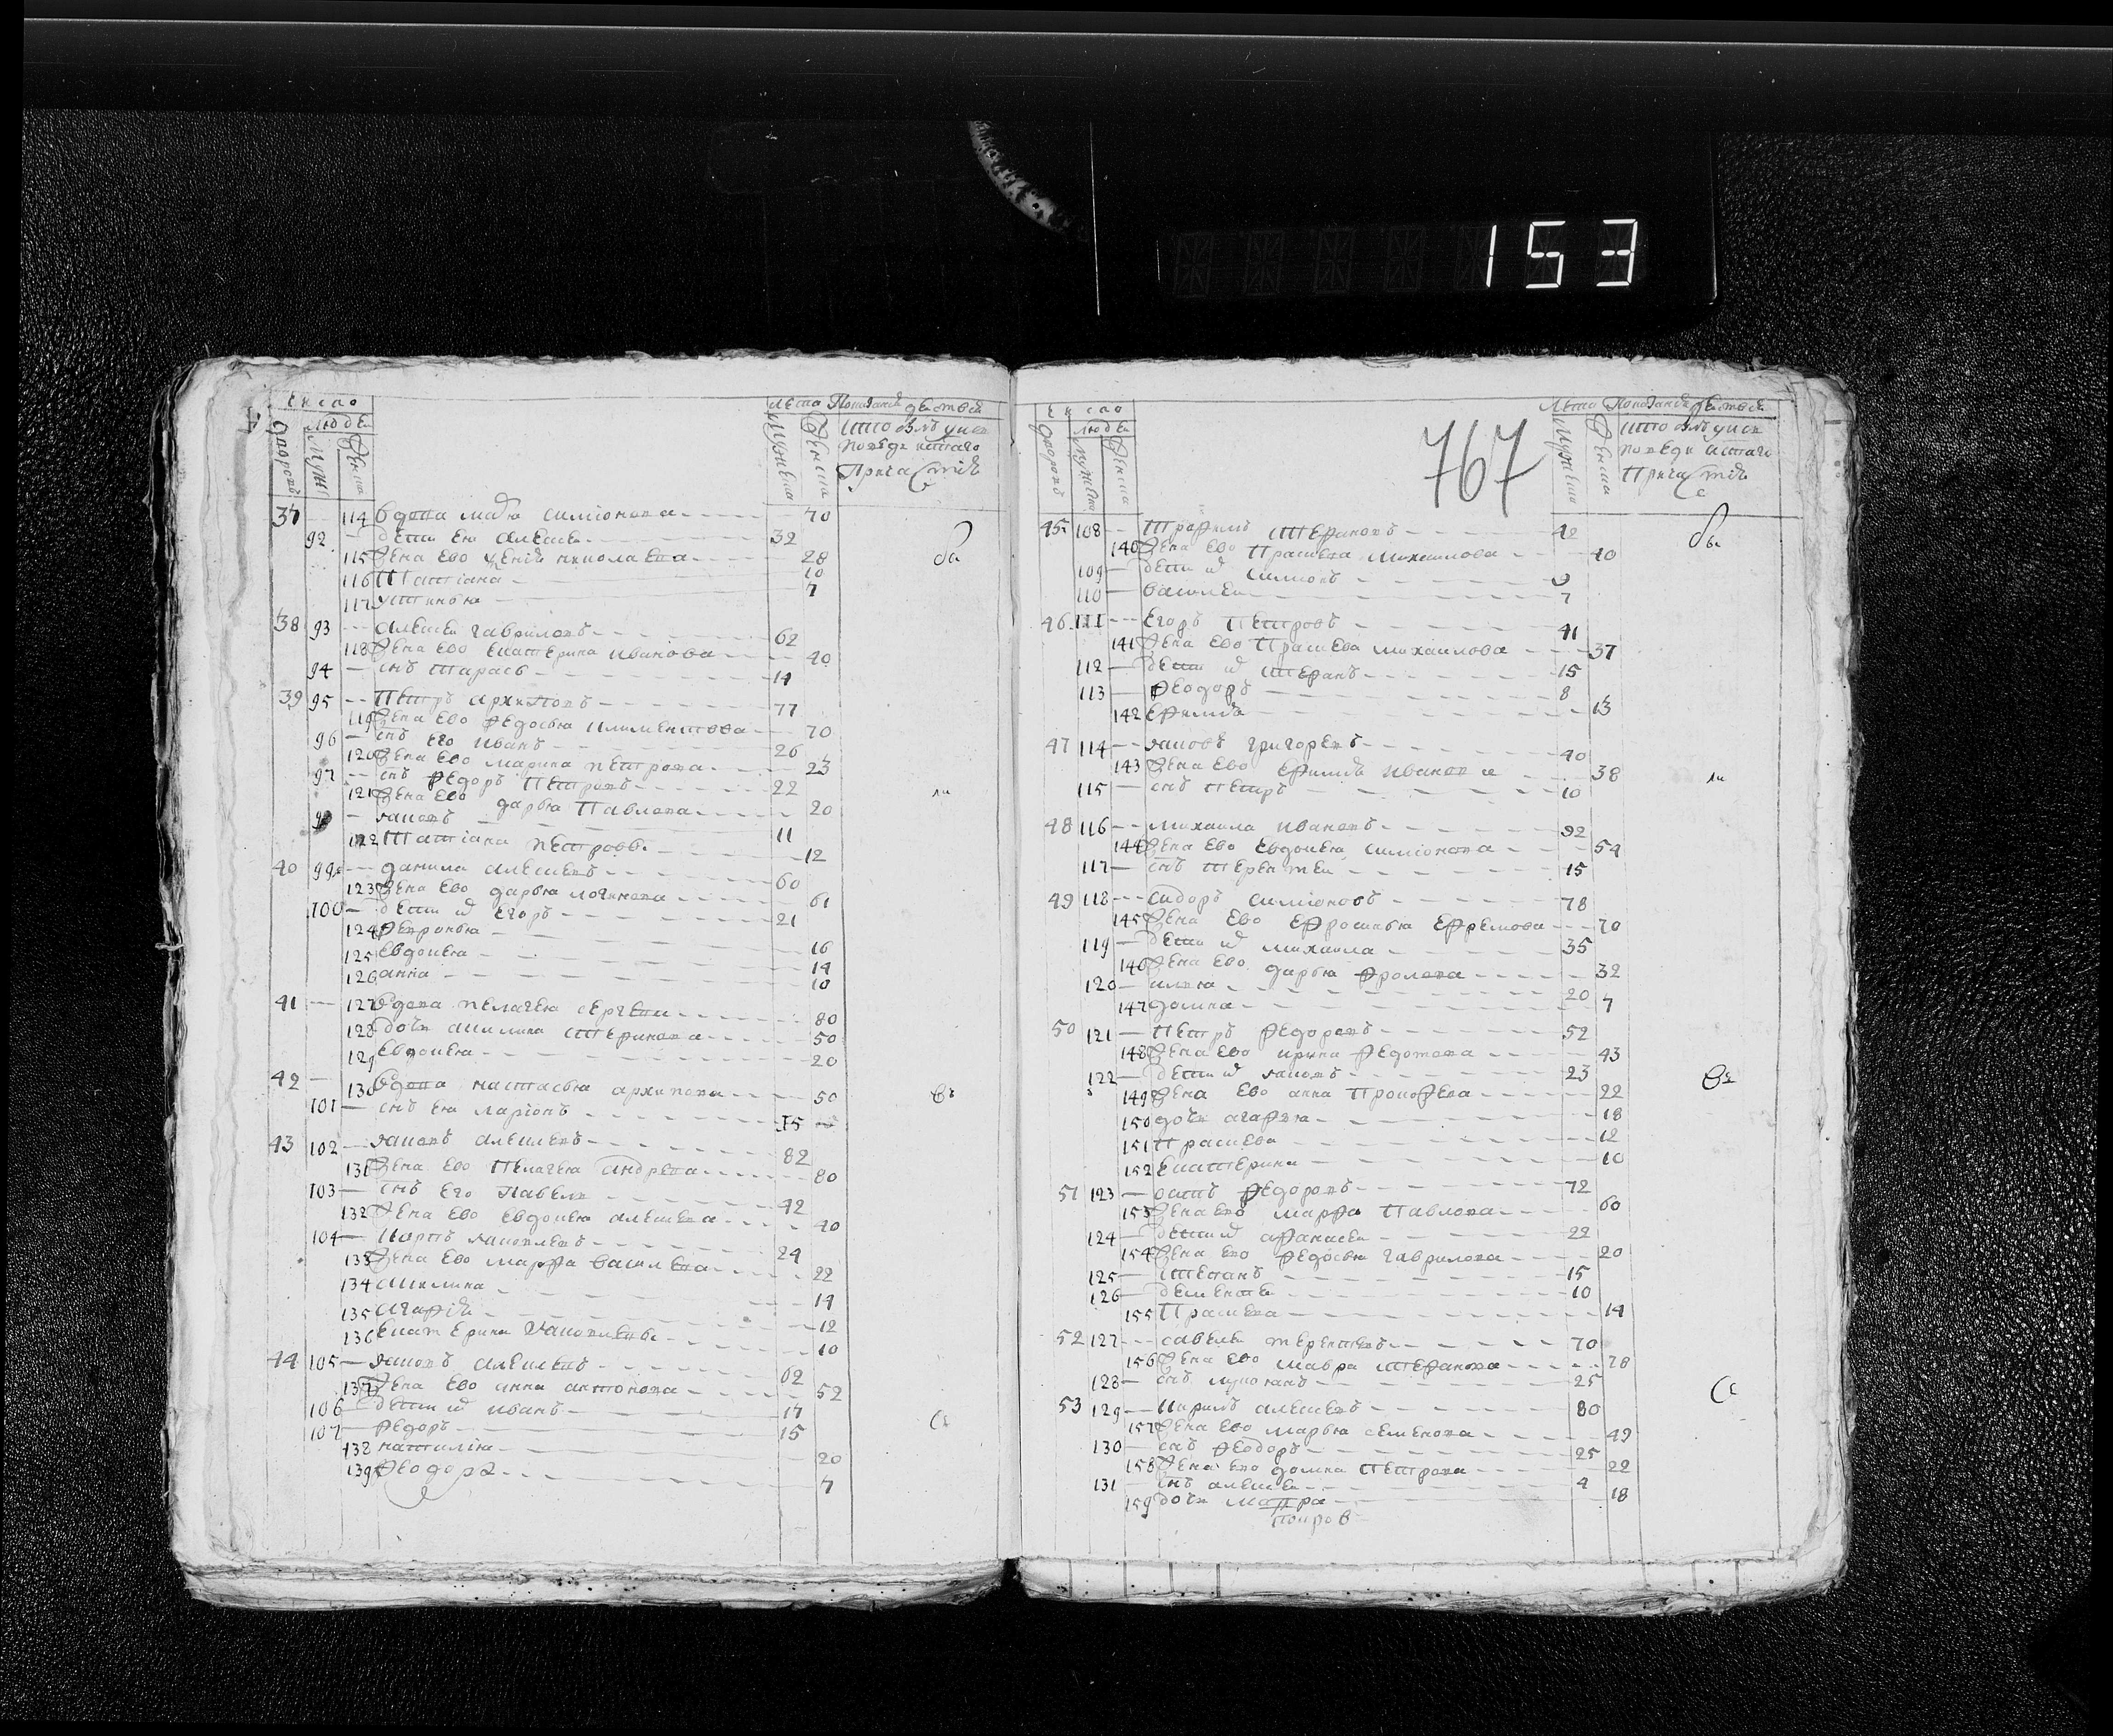 153
число
людеи
дворовъ
мужи
женска
лета
мужеска
женска
Показание действа
кто былъ у исп
поведи и стаго
Причастия
37 114 вдова мавра симионова 70
92 дети ея алексеи 32
115 жена ево ксения николаева 28
116 Татиана 10
117 устинья 7
38 93 алексеи гавриловъ 62
118 жена ево екатерина иванова 40
94 снъ тарасъ 14
39 95 Петръ архиповъ 77
119 жена ево федосья климентова 70
96 снъ его иванъ 26
120 жена ево марина петрова 23
97 снъ федоръ Петровъ 22
121 жена ево дарья Павлова 20
яковъ 11
122 Татиана петровы 12
40 99 данила алексеевъ 60
123 жена ево дарья логинова 61
100 дети их егоръ 21
124 февронья 16
125 евдокея 14
126 анна 10
41 127 вдова пелагея сергеева 80
128 дочь акилина стефанова 50
129 евдокея 20
42 130 вдова настасья архипова 50
101 снъ ея ларионъ 15
43 102 яковъ алексеевъ 82
131 жена ево Пелагея андреева 80
103 снъ его Павелъ 42
132 жена ево евдокея алексеева 40
104 карпъ яковлевъ 24
133 жена ево марфа васильева 22
134 акилина 14
135 агафия 12
136 екатерина яковлевы 10
44 105 яковъ алексеевъ 62
137 жена ево анна антонова 52
106 дети их иванъ 17
107 федоръ 15
138 наталия 20
139 феодора 7
767
число
людеи
дворовъ
мужеска
женска
лета
мужеска
женска
Показание действа
кто былъ у исп
поведи и стаго
Причастия
45 108 Трофимъ Стефановъ 42
140 жена ево Праскева михаилова 40
109 дети их симионъ 9
110 василеи 7
46 111 егоръ Петровъ 41
141 жена ево Праскева михаилова 37
112 дети их стефанъ 15
113 феодоръ 8
142 ефимия 13
47 114 яковъ григоревъ 40
143 жена ево ефимия иванова 38
115 снъ петръ 10
48 116 михаила ивановъ 92
144 жена ево евдокея симионова 54
117 снъ терентеи 15
49 118 сидоръ симионовъ 78
145 жена ево ефросинья ефремова 70
119 дети их михаила 35
146 жена ево дарья фролова 32
120 илья 20
147 домна 7
50 121 Петръ федоровъ 52
148 жена ево ирина федотова 43
122 дети их яковъ 23
149 жена ево анна Прокофева 22
150 дочь агафья 18
151 Праскева 12
152 екатерина 10
51 123 осипъ федоровъ 72
153 жена ево марфа Павлова 60
124 дети их афанасеи 22
154 жена ево федосья гаврилова 20
125 степанъ 15
126 дементеи 10
155 Праскева 14
52 127 савелеи терентевъ 70
156 жена ево мавра стефанова 78
128 снъ лукоянъ 25
53 129 кирилъ алексеевъ 80
157 жена ево марья семенова 49
130 снъ феодоръ 25
158 жена ево домна Петрова 22
131 снъ алексеи 4
159 дочь мавра 18
покров